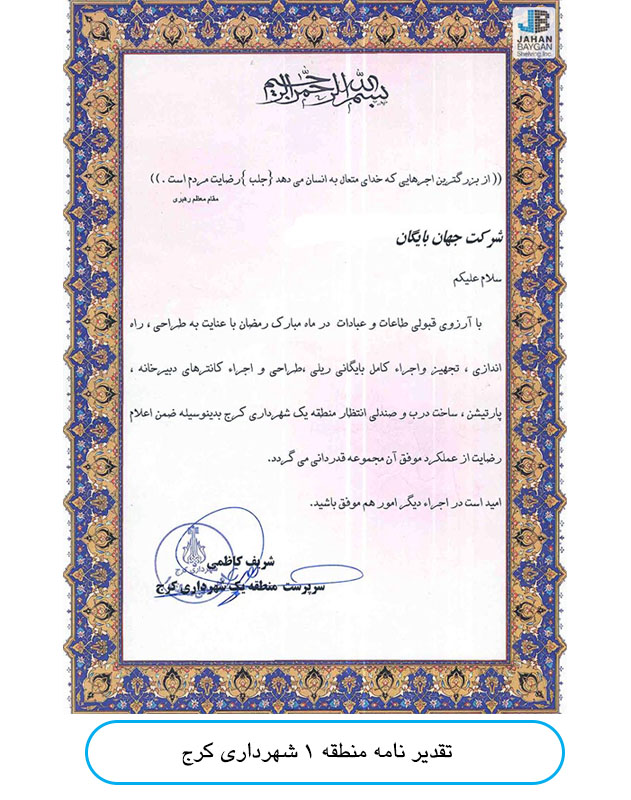 JB
JAHAN
BAYGAN
Shelving Inc.
بسم الله الرحمن الرحیم
(( از بزرگترین اجرهایی که خدای متعال به انسان می دهد {جلب }رضایت مردم است .))
مقام معظم رهبری
شرکت جهان بایگان
سلام علیکم
با آرزوی قبولی طاعات و عبادات در ماه مبارک رمضان با عنایت به طراحی ، راه
اندازی ، تجهیز واجراء کامل بایگانی ریلی ،طراحی و اجراء کانترهای دبیرخانه ،
پارتیشن ، ساخت درب و صندلی انتظار منطقه یک شهرداری کرج بدینوسیله ضمن اعلام
رضایت از عملکرد موفق آن مجموعه قدردانی می گردد.
امید است در اجراء دیگر امور هم موفق باشید.
شریف کاظمی
سرپرست منطقه یک شهرداری کرج
تقدیر نامه منطقه ۱ شهرداری کرج